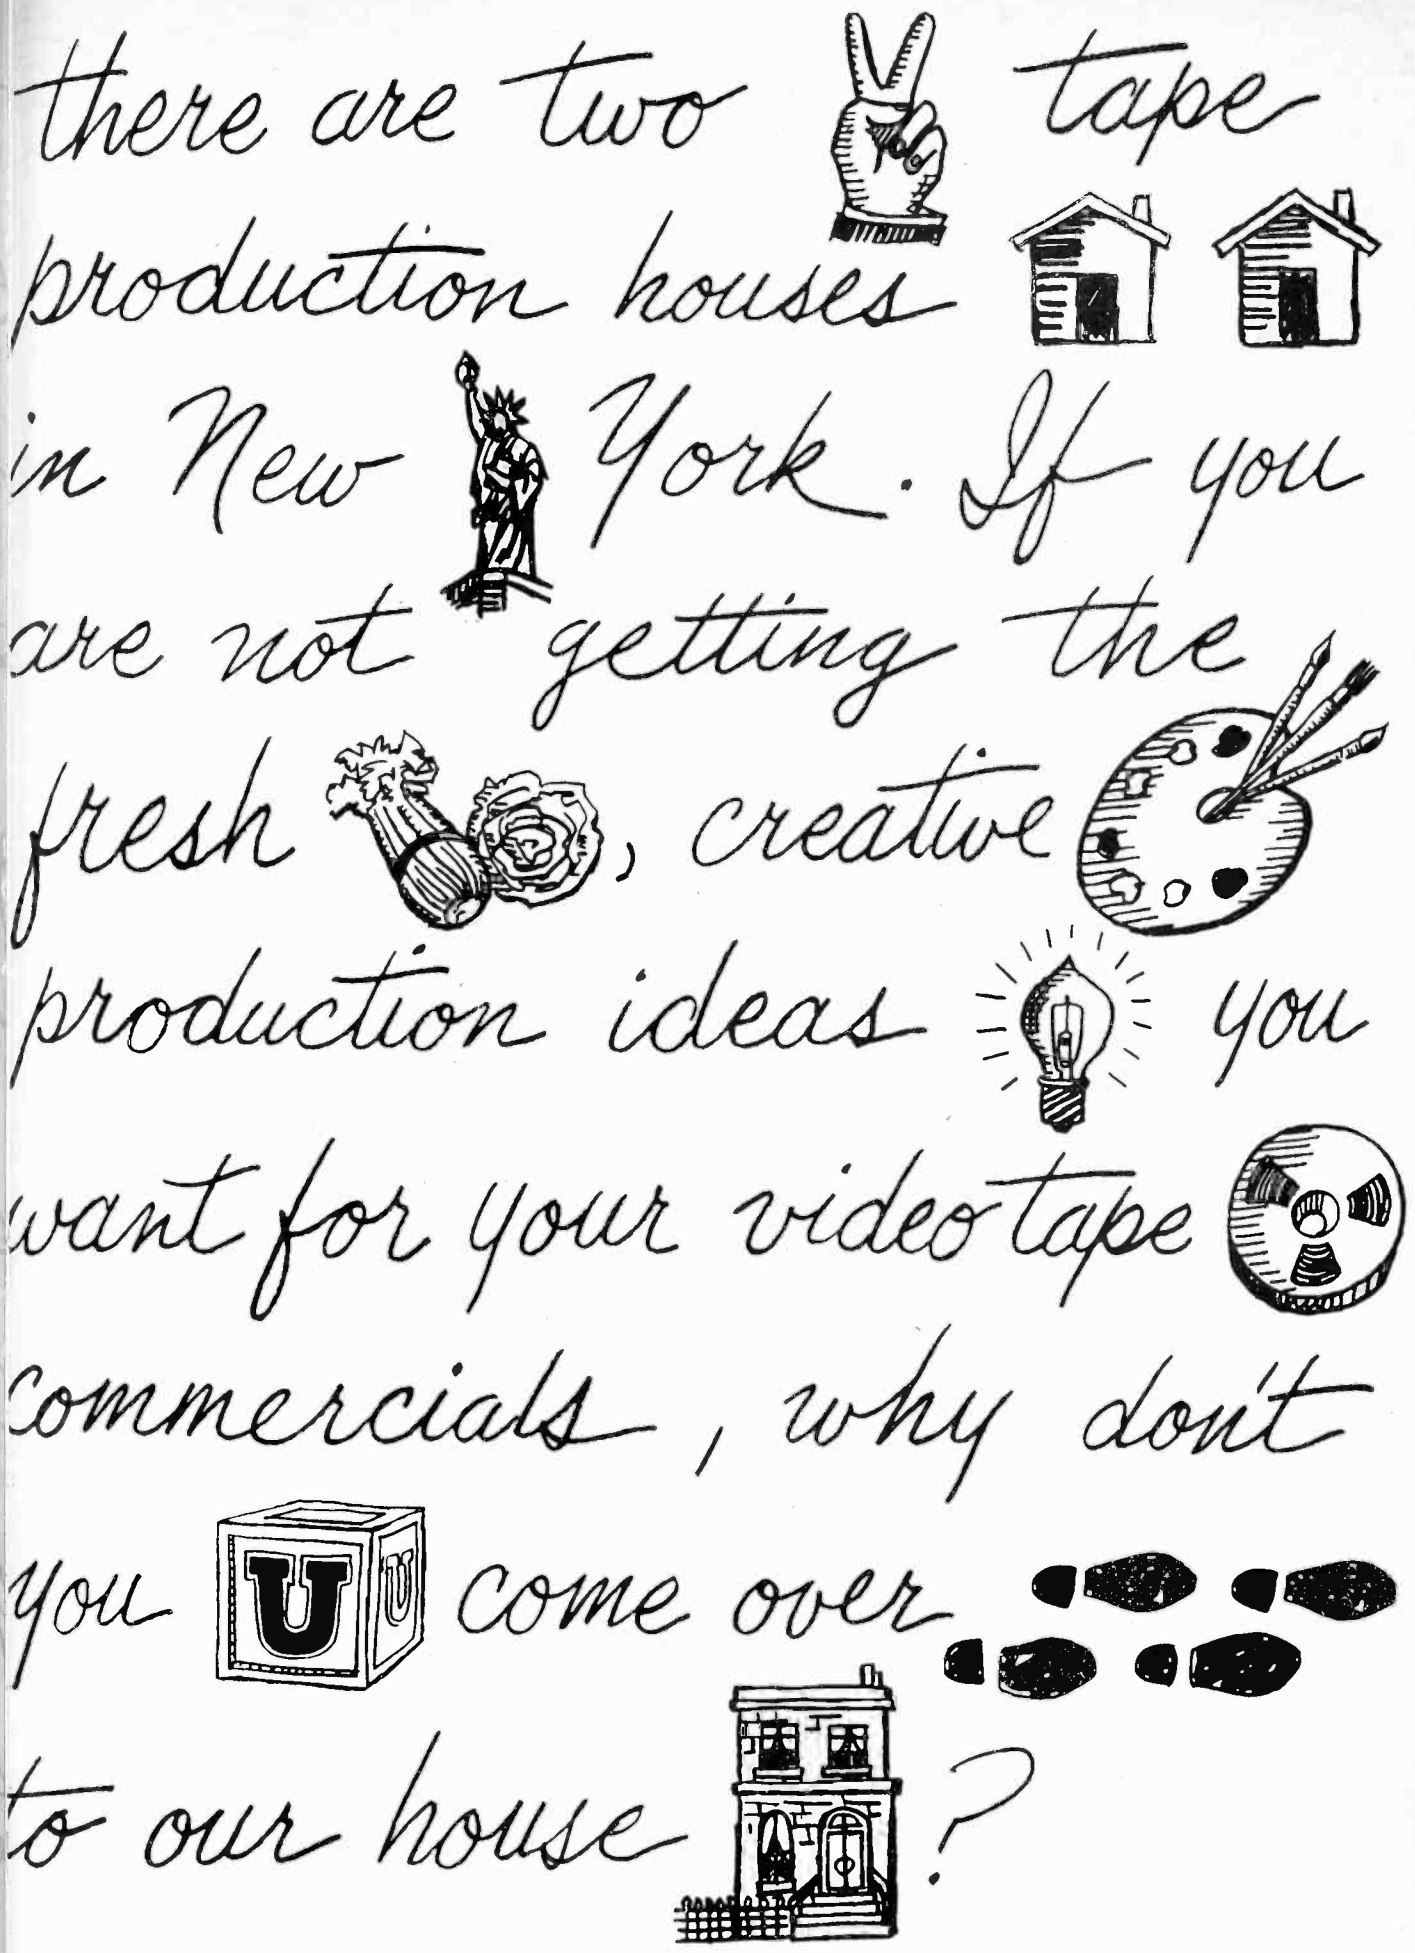 there are two tape
production houses
in New York. If you
are not getting the
fresh, creative
production ideas you
want for your videotape
commercials, why don't
you U U come over
to our house?